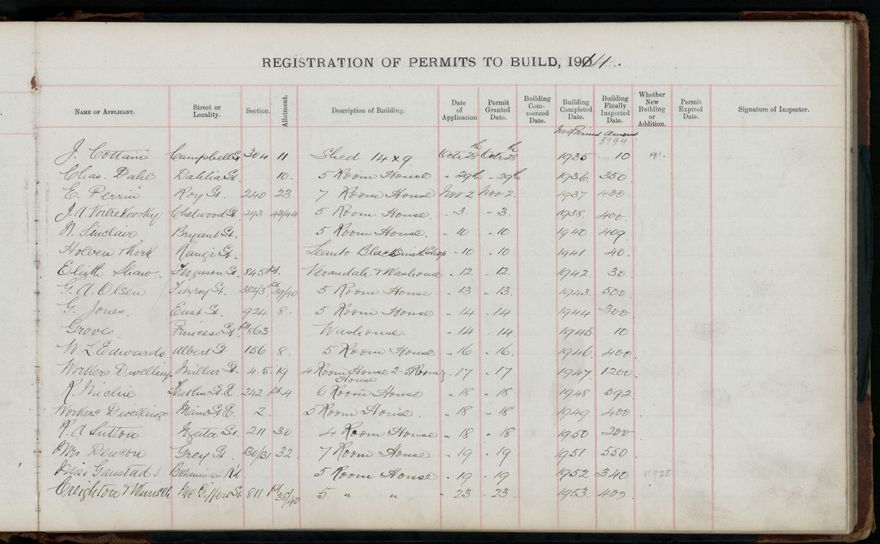 REGISTRATION OF PERMITS TO BUILD, 1914.
NAME OF APPLICANT. Street or Locality. Section. Allotment. Description of Building. Date of Application Permit Granted Date. Building Commenced Date. Building Completed Date. Building Finally Inspected Date. Whether New Building or Addition. Permit Expired Date. Signature of Inspector.
No of Permit Amount
5794
J. Cottam Campbell St 304 11 Shed 14 x 9 Octr 28th Octr 28th 1935 10
Chas. Dahl Dahlia St. 10. 5 Room House " 29th " 29th 1936 350
E. Perrin Roy St. 240 23 7 Room House Nov 2 Nov 2. 1937 400.
J. A. Voitrekovsky Chelwood St. 293 43/44 5 Room House. " 3 " 3. 1938. 400.
Sinclair Bryant St. 5 Room House. " 10 " 10 1940 409
Holben & Kirk Rangi St. Leanto Blacksmith Shop " 10 " 10 1941 40.
Elizth Shaw. Ferguson St. 845 pt. Verandah & Washouse " 12 " 12. 1942. 30
G. A. Olsen Fitzroy St. 382/3 pt 39/40 5 Room House " 13 " 13. 1943. 500.
G. Jones. East St. 924 8. 5 Room House " 14 " 14 1944 300
Groves Princess St. pt 863 Washouse. " 14 " 14 1945 10
W. L. Edwards Albert St. 156 8. 5 Room House " 16 " 16. 1946. 400.
Workers Dwellings Millar St. 4.5 19 4 Room House 2-5 Room House " 17 " 17 1947 1200
R. Michie St. E. 242 pt 4 6 Room House " 18 " 18 1948 592
Workers Dwellings Main St. E. 2. 5 Room House. " 18 " 18 1949 400
R. A. Sutton Ngata St. 211 30 4 Room House " 18 " 18 1950 200
Mrs Deacon Grey St. 130/31 32 7 Room House " 19 " 19 1951 550
Miss Ganstad Rd. 5 Room House " 19 " 19 1952 340
Creighton & St. 811 pt 35/40 5 " " " 23 " 23. 1953. 400